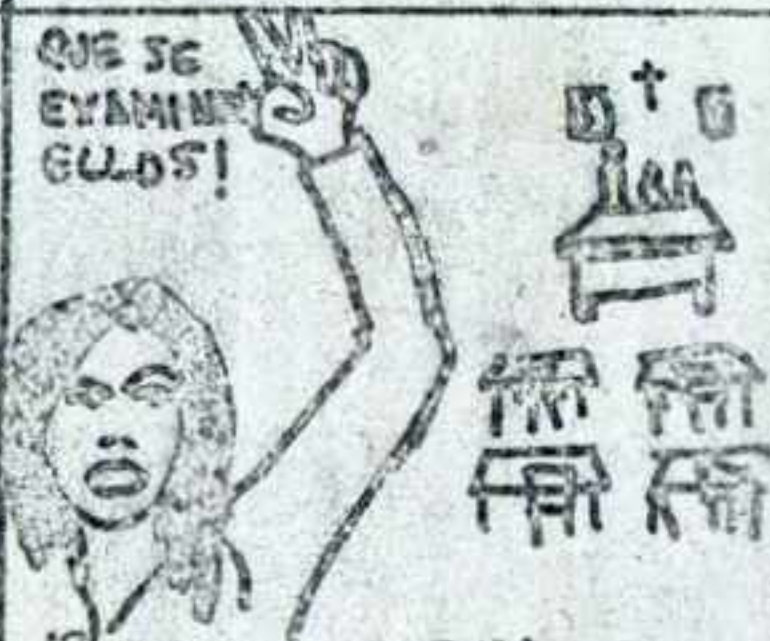 QUE SE
EXAMINEN
ELLOS!